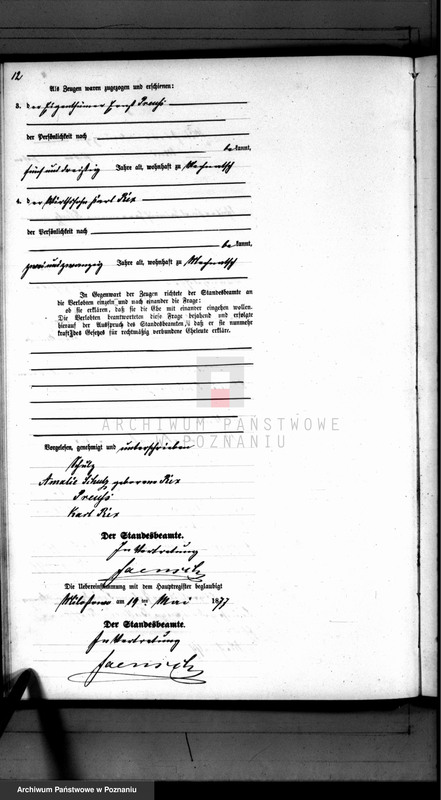 12
Als Zeugen waren zugezogen und erschienen:
3. der Eigenthümer Ernst Preuß
der Persönlichkeit nach
be kannt,
fünf und dreißig Jahre alt, wohnhaft zu
4. der Wirthssohn Karl Rex
der Persönlichkeit nach
be kannt,
zwei und zwanzig Jahre alt, wohnhaft zu
In Gegenwart der Zeugen richtete der Standesbeamte an
die Verlobten einzeln und nach einander die Frage:
ob sie erklären, daß sie die Ehe mit einander eingehen wollen.
Die Verlobten beantworteten diese Frage bejahend und erfolgte
hierauf der Ausspruch des Standesbeamten, daß er sie nunmehr
kraft des Gesetzes für rechtmäßig verbundene Eheleute erkläre.
ARCHIWUM PAŃSTWOWE
W POZNANIU
Vorgelesen, genehmigt und unterschrieben
Schulz
Amalie Schulz geborene Rex
Preuß
Karl Rex
Der Standesbeamte.
In Vertretung
Jaensch
Die Uebereinstimmung mit dem Hauptregister beglaubigt
Miloslowo am 19 ten Mai 1877
Der Standesbeamte.
In Vertretung
Jaensch
Archiwum Państwowe w Poznaniu